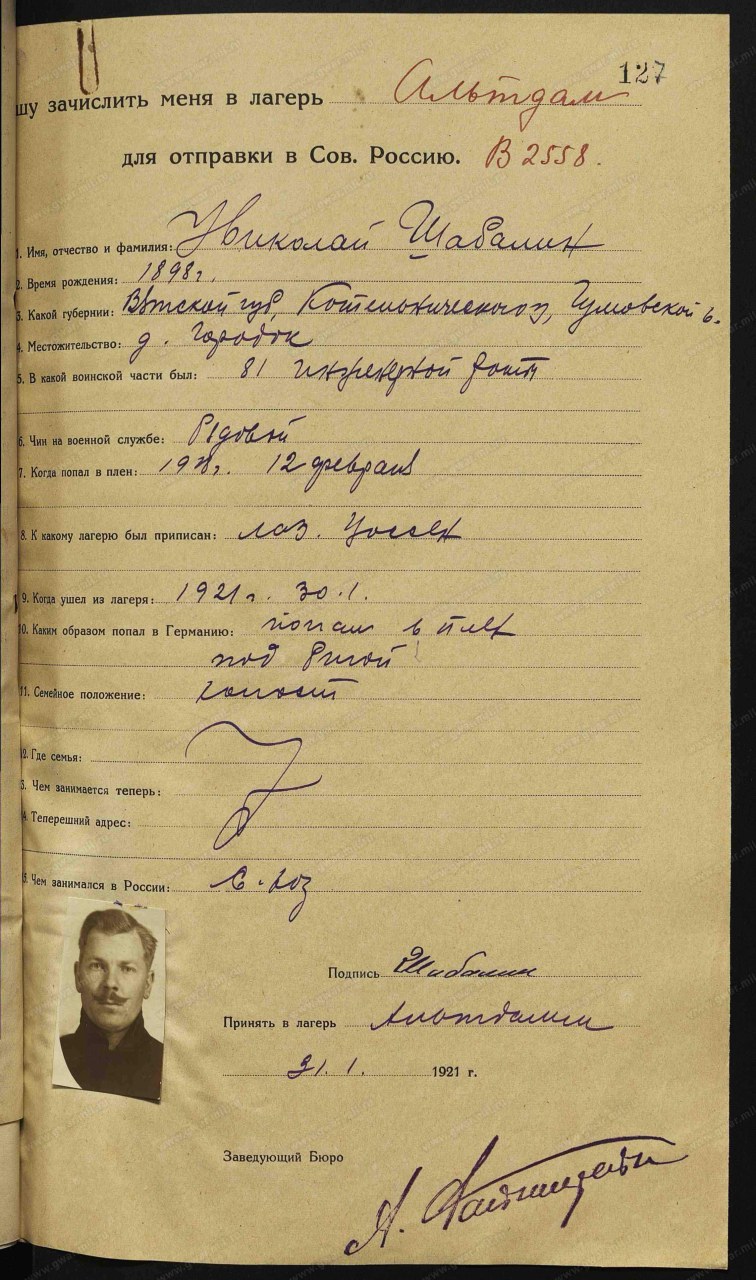 127
шу зачислить меня в лагерь Альтдам
для отправки в Сов. Россию. В 2558.
1. Имя, отчество и фамилия: Николай Шабалин
2. Время рождения: 1898 г.
3. Какой губернии: Вятской губ, Котельнического у,
4. Местожительство: д. Городок
5. В какой воинской части был: 81
6. Чин на военной службе: Рядовой
7. Когда попал в плен: 12 февраля
8. К какому лагерю был приписан: лаз. Цоссен
9. Когда ушел из лагеря: 1921 г. 30.1.
10. Каким образом попал в Германию: попал в плен
под Ригой
11. Семейное положение: холост
12. Где семья:
3. Чем занимается теперь:
4. Теперешний адрес:
5. Чем занимался в России: С. хоз
Подпись Шабалин
Принять в лагерь Альтдамм
31.1. 1921 г.
Заведующий Бюро